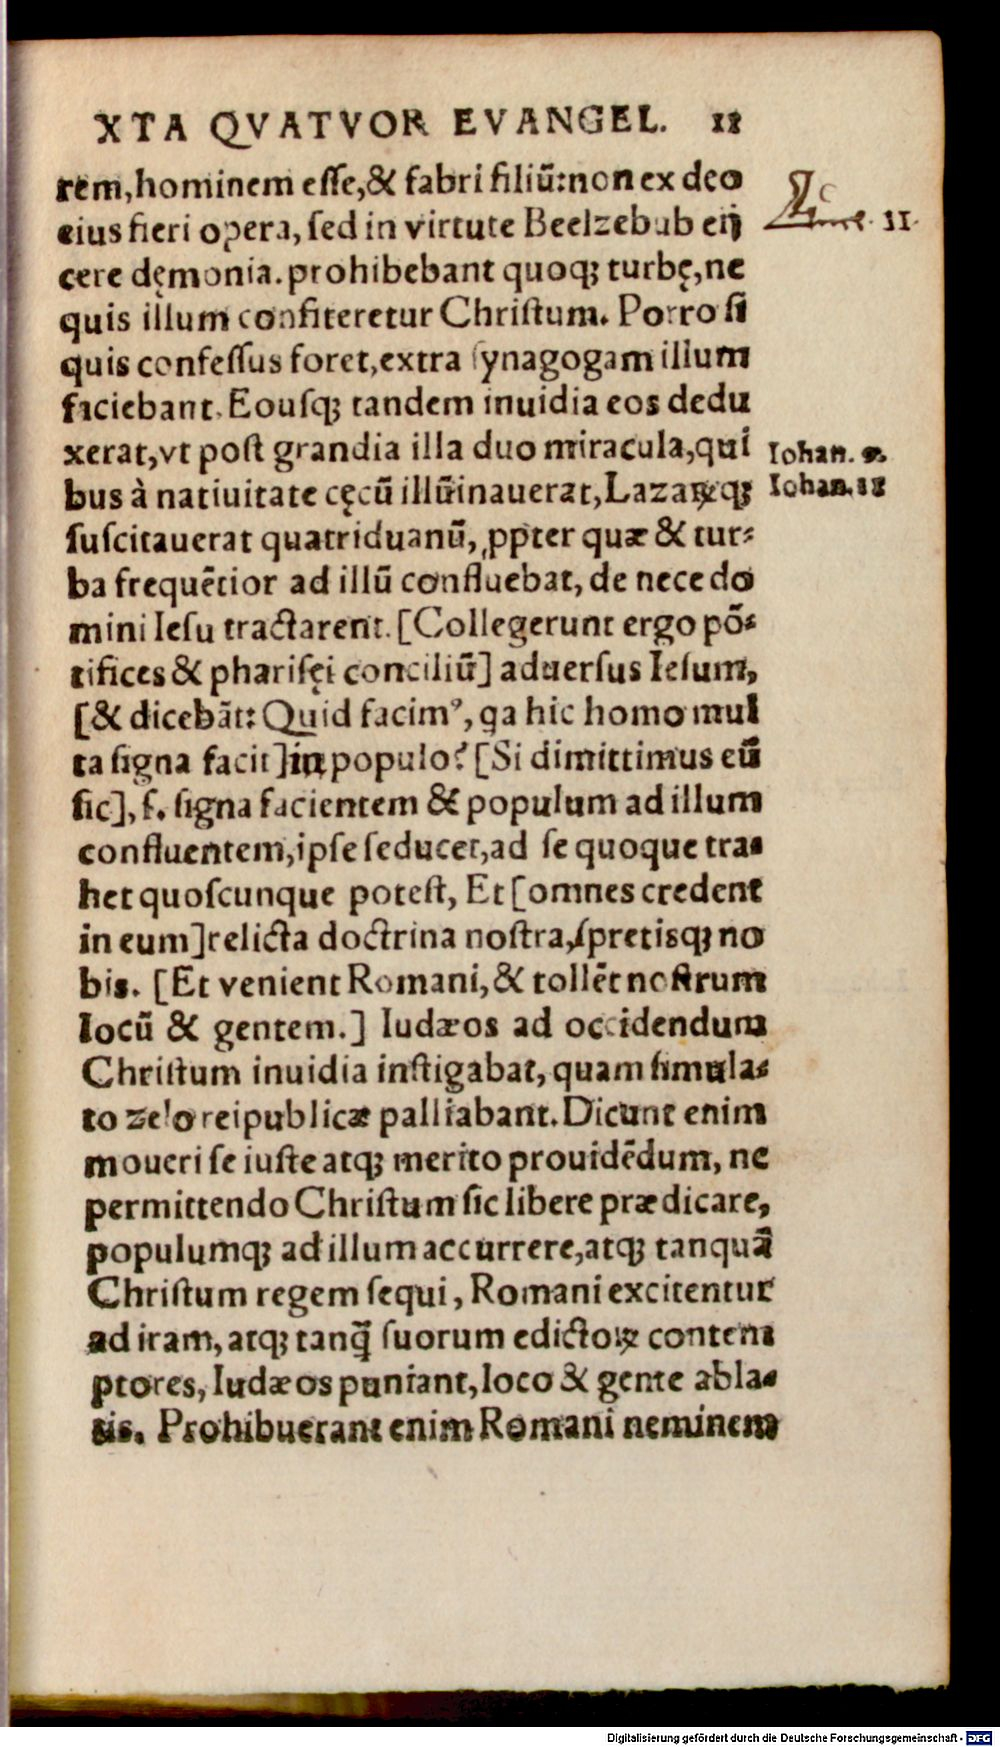 XTA QVATVOR EVANGEL. 11
rem, hominem eſſe, & fabri filiū: non ex deo
eius fieri opera, ſed in virtute Beelzebub eij
cere dęmonia. prohibebant quoq; turbę, ne
quis illum confiteretur Chriſtum. Porro ſi
quis confeſſus foret, extra ſynagogam illum
faciebant. Eouſq; tandem inuidia eos dedu
xerat, vt poſt grandia illa duo miracula, qui
Iohan. 9.
bus à natiuitate cęcū illūinauerat, Lazaꝝq;
Iohan. 11
ſuſcitauerat quatriduanū, ꝓpter quæ & tur⸗
ba frequētior ad illū confluebat, de nece do
mini Ieſu tractarent. [Collegerunt ergo pō⸗
tifices & phariſęi conciliū] aduerſus Ieſum,
[& dicebāt: Quid facimꝰ, ꝗa hic homo mul
ta ſigna facit] in populo? [Si dimittimus eū
ſic], ſ. ſigna facientem & populum ad illum
confluentem, ipſe ſeducet, ad ſe quoque tra⸗
het quoſcunque poteſt, Et [omnes credent
in eum] relicta doctrina noſtra, ſpretisq; no
bis. [Et venient Romani, & tollēt noſtrum
locū & gentem.] Iudæos ad occidendum
Chriſtum inuidia inſtigabat, quam ſimula⸗
to zelo reipublicæ palliabant. Dicunt enim
moueri ſe iuſte atq; merito prouidēdum, ne
permittendo Chriſtum ſic libere prædicare,
populumq; ad illum accurrere, atq; tanquā
Chriſtum regem ſequi, Romani excitentur
ad iram, atq; tanꝗ̄ ſuorum edictoꝝ contem
ptores, Iudæos puniant, loco & gente abla⸗
tis. Prohibuerant enim Romani neminem
Digitalisierung gefördert durch die Deutsche Forschungsgemeinschaft - DFG